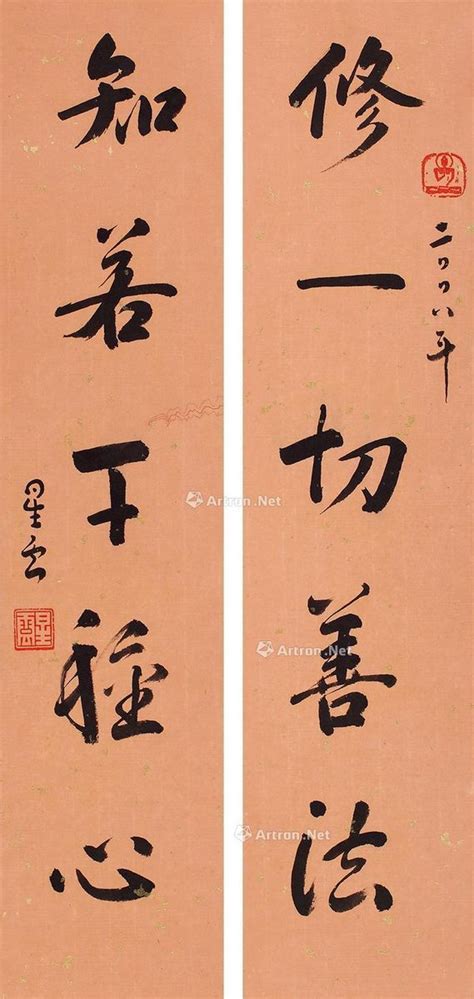 修一切善法
二〇〇八年
知若干種心
星云
星雲
Artron.Net
Artron.Net
Artron.Net